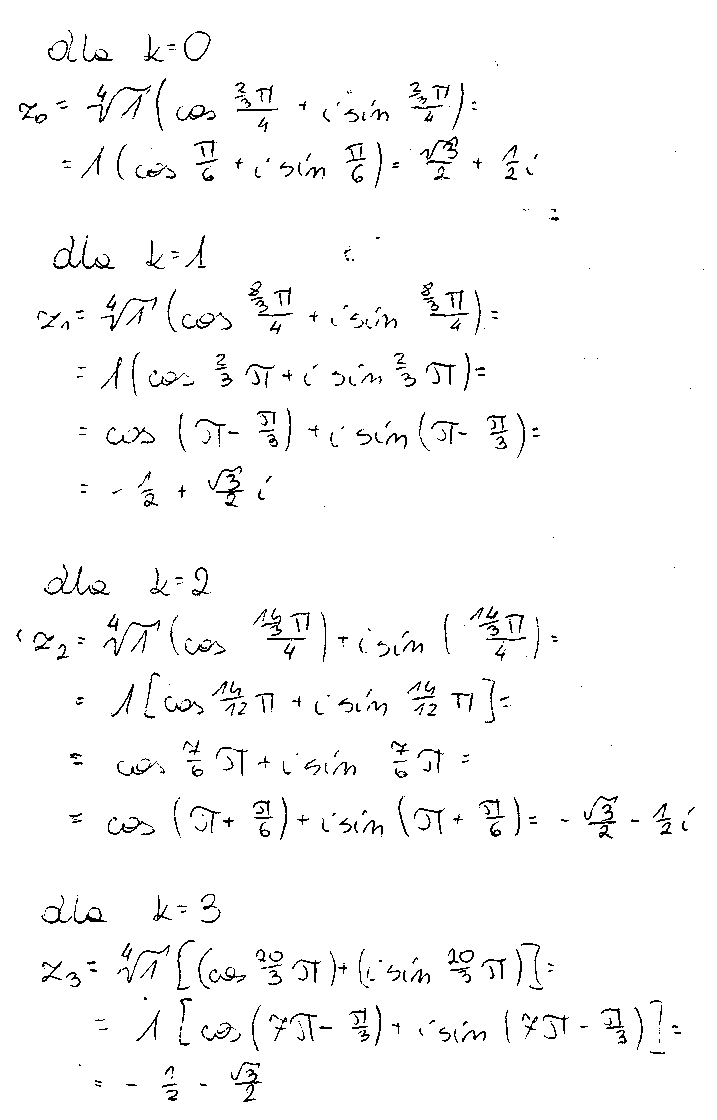 dla k=0
z₀ = ⁴√1 (cos (2/3 π)/4 + i sin (2/3 π)/4) =
= 1 (cos π/6 + i sin π/6) = √3/2 + 1/2 i
dla k=1
z₁ = ⁴√1 (cos (8/3 π)/4 + i sin (8/3 π)/4) =
= 1 (cos 2/3 π + i sin 2/3 π) =
= cos (π - π/3) + i sin (π - π/3) =
= - 1/2 + √3/2 i
dla k=2
z₂ = ⁴√1 (cos (14/3 π)/4) + i sin ((14/3 π)/4) =
= 1 [cos 14/12 π + i sin 14/12 π] =
= cos 7/6 π + i sin 7/6 π =
= cos (π + π/6) + i sin (π + π/6) = - √3/2 - 1/2 i
dla k=3
z₃ = ⁴√1 [(cos 20/3 π) + (i sin 20/3 π)] =
= 1 [cos (7π - π/3) + i sin (7π - π/3)] =
= - 1/2 - √3/2